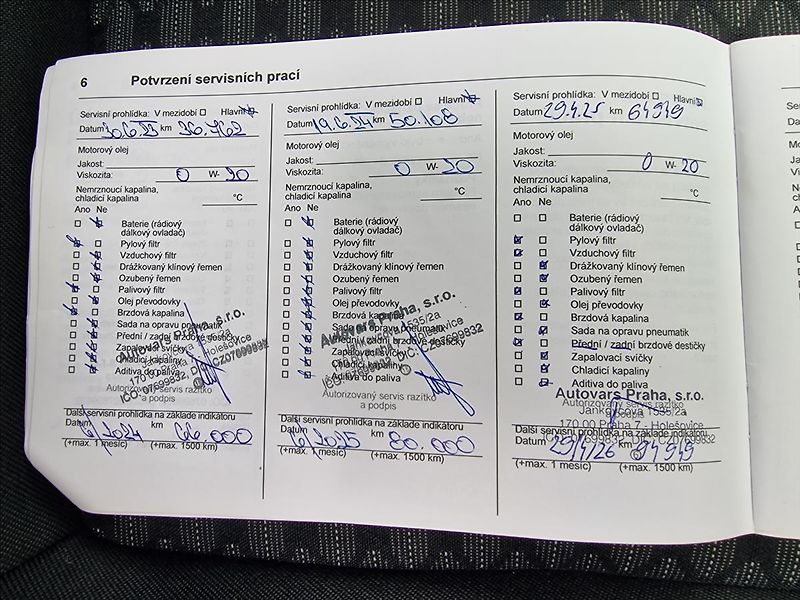 6 Potvrzení servisních prací
Servisní prohlídka: V mezidobí Hlavní
Datum 30.6.23 km 36.762
Motorový olej
Jakost:
Viskozita: 0 W- 20
Nemrznoucí kapalina,
chladicí kapalina °C
Ano Ne
Baterie (rádiový
dálkový ovladač)
Pylový filtr
Vzduchový filtr
Drážkovaný klínový řemen
Ozubený řemen
Palivový filtr
Olej převodovky
Brzdová kapalina
Sada na opravu pneumatik
Přední / zadní brzdové destičky
Zapalovací svíčky
Chladicí kapaliny
Aditiva do paliva
Autovars Praha, s.r.o.
Autorizovaný servis razítko
a podpis
Další servisní prohlídka na základě indikátoru
Datum 6/2024 km 66.000
(+max. 1 měsíc) (+max. 1500 km)
Servisní prohlídka: V mezidobí Hlavní
Datum 19.6.24 km 50.108
Motorový olej
Jakost:
Viskozita: 0 W- 20
Nemrznoucí kapalina,
chladicí kapalina °C
Ano Ne
Baterie (rádiový
dálkový ovladač)
Pylový filtr
Vzduchový filtr
Drážkovaný klínový řemen
Ozubený řemen
Palivový filtr
Olej převodovky
Brzdová kapalina
Sada na opravu pneumatik
Přední / zadní brzdové destičky
Zapalovací svíčky
Chladicí kapaliny
Aditiva do paliva
Autovars Praha, s.r.o.
Autorizovaný servis razítko
a podpis
Další servisní prohlídka na základě indikátoru
Datum 6/2025 km 80.000
(+max. 1 měsíc) (+max. 1500 km)
Servisní prohlídka: V mezidobí Hlavní
Datum 29.4.25 km 64949
Motorový olej
Jakost:
Viskozita: 0 W- 20
Nemrznoucí kapalina,
chladicí kapalina °C
Ano Ne
Baterie (rádiový
dálkový ovladač)
Pylový filtr
Vzduchový filtr
Drážkovaný klínový řemen
Ozubený řemen
Palivový filtr
Olej převodovky
Brzdová kapalina
Sada na opravu pneumatik
Přední / zadní brzdové destičky
Zapalovací svíčky
Chladicí kapaliny
Aditiva do paliva
Autovars Praha, s.r.o.
Autorizovaný servis razítko
Jankovcova 1535/2a
170 00 Praha 7 - Holešovice
Další servisní prohlídka na základě indikátoru
Datum 29/4/26 km 94949
(+max. 1 měsíc) (+max. 1500 km)